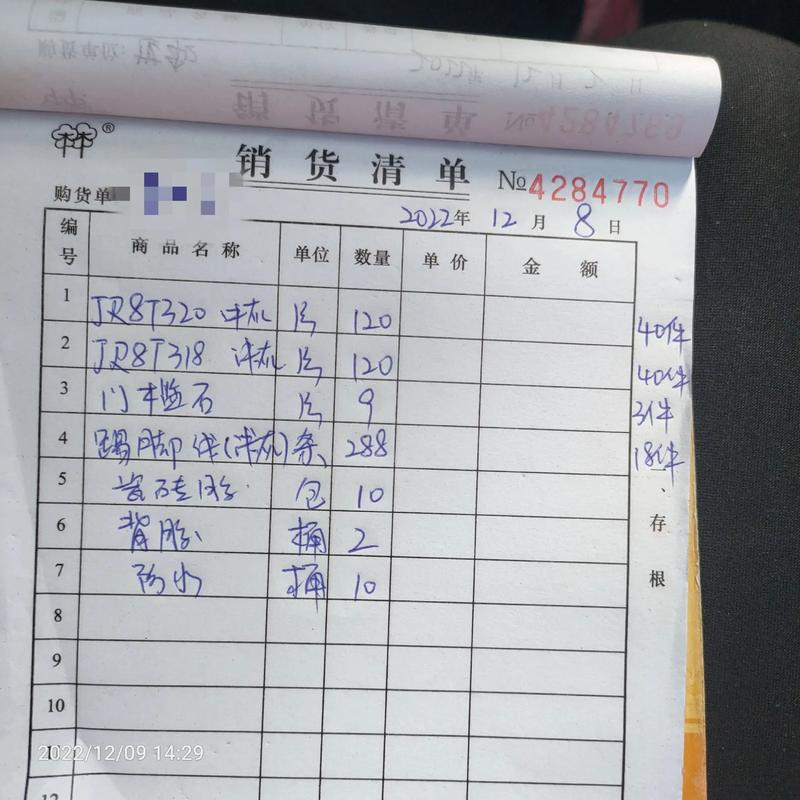 销货清单 №4284770
购货单
2022年 12月 8日
编号 商品名称 单位 数量 单价 金额
1 JR8T320 片 120 40件
2 JR8T318 片 120 40件
3 门槛石 片 9 3件
4 踢脚线 条 288 18件
5 瓷砖胶 包 10
6 背胶 桶 2
7 防水 桶 10
8
9
10
12
存根
2022/12/09 14:29